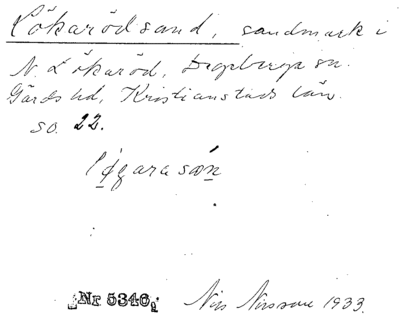 Lökarödsand, sandmark i
N. Lökaröd, Degeberga sn.
Gärds hd, Kristianstads län.
so. 22.
Nr 5346, Nils Nilsson 1933.